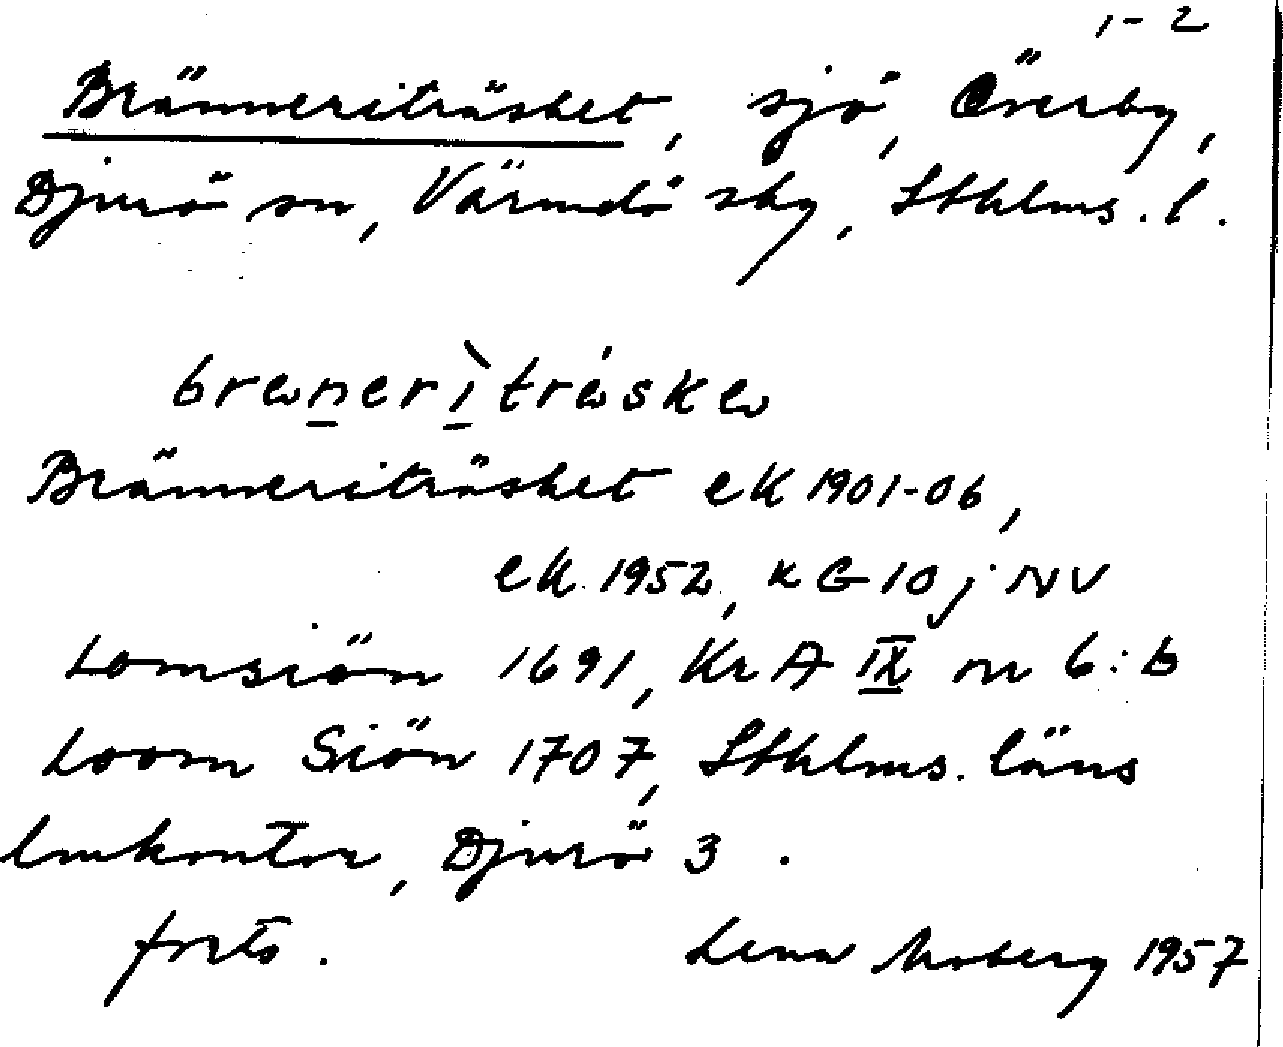 1-2
Bränneriträsket, sjö, Överby,
Djurö sn, Värmdö skg, Sthlms. l.
brenerìtréske
Bränneriträsket ek 1901-06,
ek. 1952, k G 10 j NV
Lomsiön 1691, KrA IX nr 6:b
Loom Siön 1707, Sthlms. läns
lmkontor, Djurö 3.
forts. Lena Moberg 1957